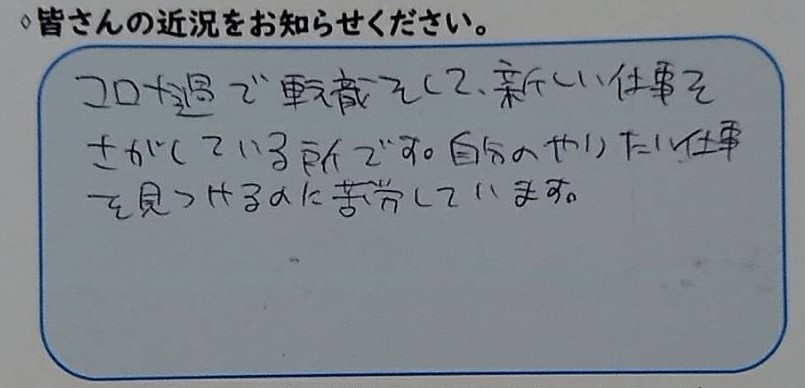 ◇皆さんの近況をお知らせください。
コロナ過で転職をして、新しい仕事を
さがしている所です。自分のやりたい仕事
を見つけるのに苦労しています。